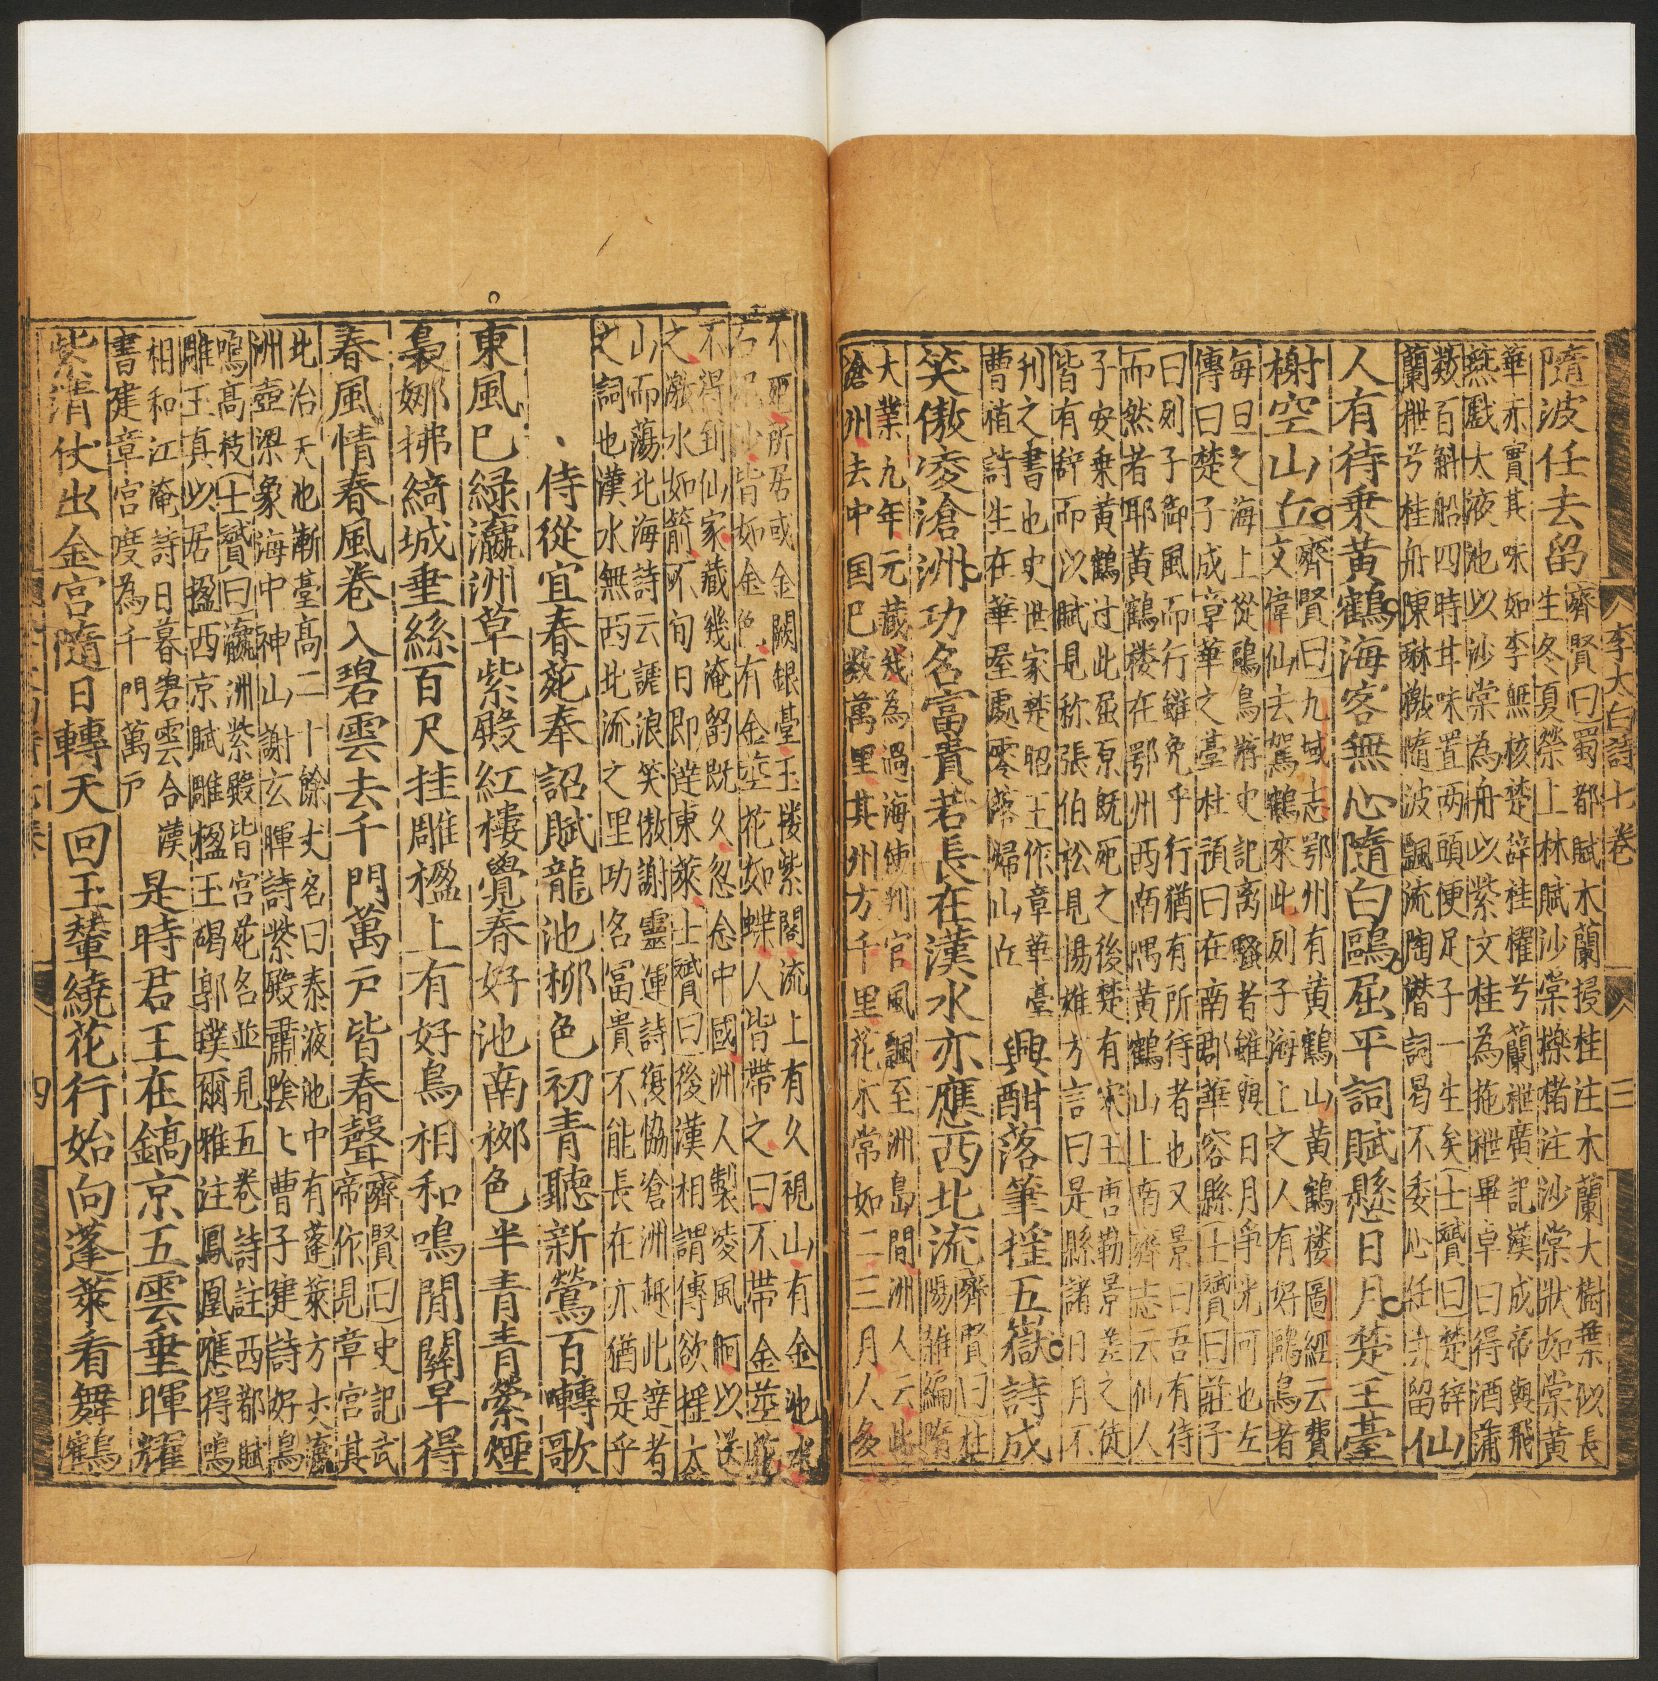 李太白詩七卷 三
隨波任去留
齊賢曰蜀都賦木蘭㭸桂注木蘭大樹葉似長
生冬夏榮上林賦沙棠櫟櫧注沙棠狀如棠黃
華赤實其味如李無核楚辭桂櫂兮蘭枻廣記漢成帝與飛
燕戲太液池以沙棠為舟以紫文桂為拖枻畢卓曰得酒蒲
数百斛船四時甘味置两頭便足了一生矣士贇曰楚辭
蘭枻兮桂舟陳琳檄隨波飄流陶潜詞曷不委心任去留
仙
人有待乗黃鶴海客無心隨白鷗屈平詞賦懸日月楚王臺
榭空山丘
齊賢曰九域志鄂州有黃鶴山黃鶴楼圖經云費
文偉仙去駕鶴來此列子海上之人有好鷗鳥者
每旦之海上從鷗鳥游史記离騷者雖與日月爭光可也左
傳曰楚子成章華之臺杜預曰在南郡華容縣士贇曰莊子
曰列子御風而行雖免乎行猶有所待者也又景曰吾有待
而然者耶黃鶴楼在鄂州西南隅黃鶴山上南齊志云仙人
子安乗黃鶴过此屈原既死之後楚有宋玉唐勒景差之徒
皆有辞而以賦見称張伯松見揚雄方言曰是縣諸日月不
刊之書也史世家楚昭王作章華臺
曹植詩生在華屋處零落歸山丘
興酣落筆揺五嶽詩成
笑傲凌滄洲功名富貴若長在漢水亦應西北流
齊賢曰杜
陽雜編隋
大業九年元藏㡬為過海使判官風飄至洲島間洲人云此
滄州去中国已数萬里其州方千里花木常如二三月人多
不死所居或金闕銀臺玉楼紫閣流上有久視山有金池水
石泥沙皆如金色有金莖花如蝶人皆帶之曰不帶金莖花
不得到仙家藏幾淹留既久忽念中國洲人製凌風舸以送
之激水如箭不旬日即逹東萊士贇曰後漢相謂傳欲揺太
山而蕩北海詩云謔浪笑傲謝靈運詩復協滄洲趣此達者
之詞也漢水無西北流之里功名冨貴不能長在亦猶是乎
侍從宜春苑奉 詔賦龍池柳色初青聽新鶯百囀歌
東風已緑瀛洲草紫殿紅樓覺春好池南栁色半青青縈煙
裊娜拂綺城垂絲百尺挂雕楹上有好鳥相和鳴閒關早得
春風情春風巻入碧雲去千門萬戸皆春聲
齊賢曰史記武
帝作見章宮其
北治大池漸臺高二十餘丈名曰泰液池中有蓬萊方丈瀛
洲壺梁象海中神山謝玄暉詩紫殿肅陰匕曹子建詩好鳥
鳴高枝士贇曰瀛洲紫殿皆宮苑名並見五巻詩註西都賦
雕玉真以居楹西京賦雕楹玉碣郭璞爾雅注鳳凰應得鳴
相和江淹詩日暮碧雲合漢
書建章宮度為千門萬戸
是時君王在鎬京五雲垂暉耀
紫清仗出金宮隨日轉天回玉輦繞花行始向蓬萊看舞鶴
四